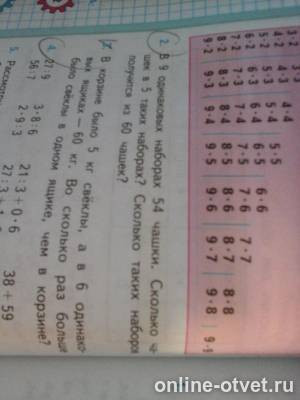 3·2
4·2 4·3 4·4
5·2 5·3 5·4 5·5
6·2 6·3 6·4 6·5 6·6
7·2 7·3 7·4 7·5 7·6 7·7
8·2 8·3 8·4 8·5 8·6 8·7 8·8
9·2 9·3 9·4 9·5 9·6 9·7 9·8 9·9
2. В 9 одинаковых наборах 54 чашки. Сколько ча-
шек в 5 таких наборах? Сколько таких наборов
получится из 60 чашек?
В корзине было 5 кг свёклы, а в 6 одинако-
вых ящиках — 60 кг. Во сколько раз больше
было свёклы в одном ящике, чем в корзине?
4. 21:9 3·8:6 21:3+0·6 38+59
56:7 2·9:3 27:3+1
5.
online-otvet.ru